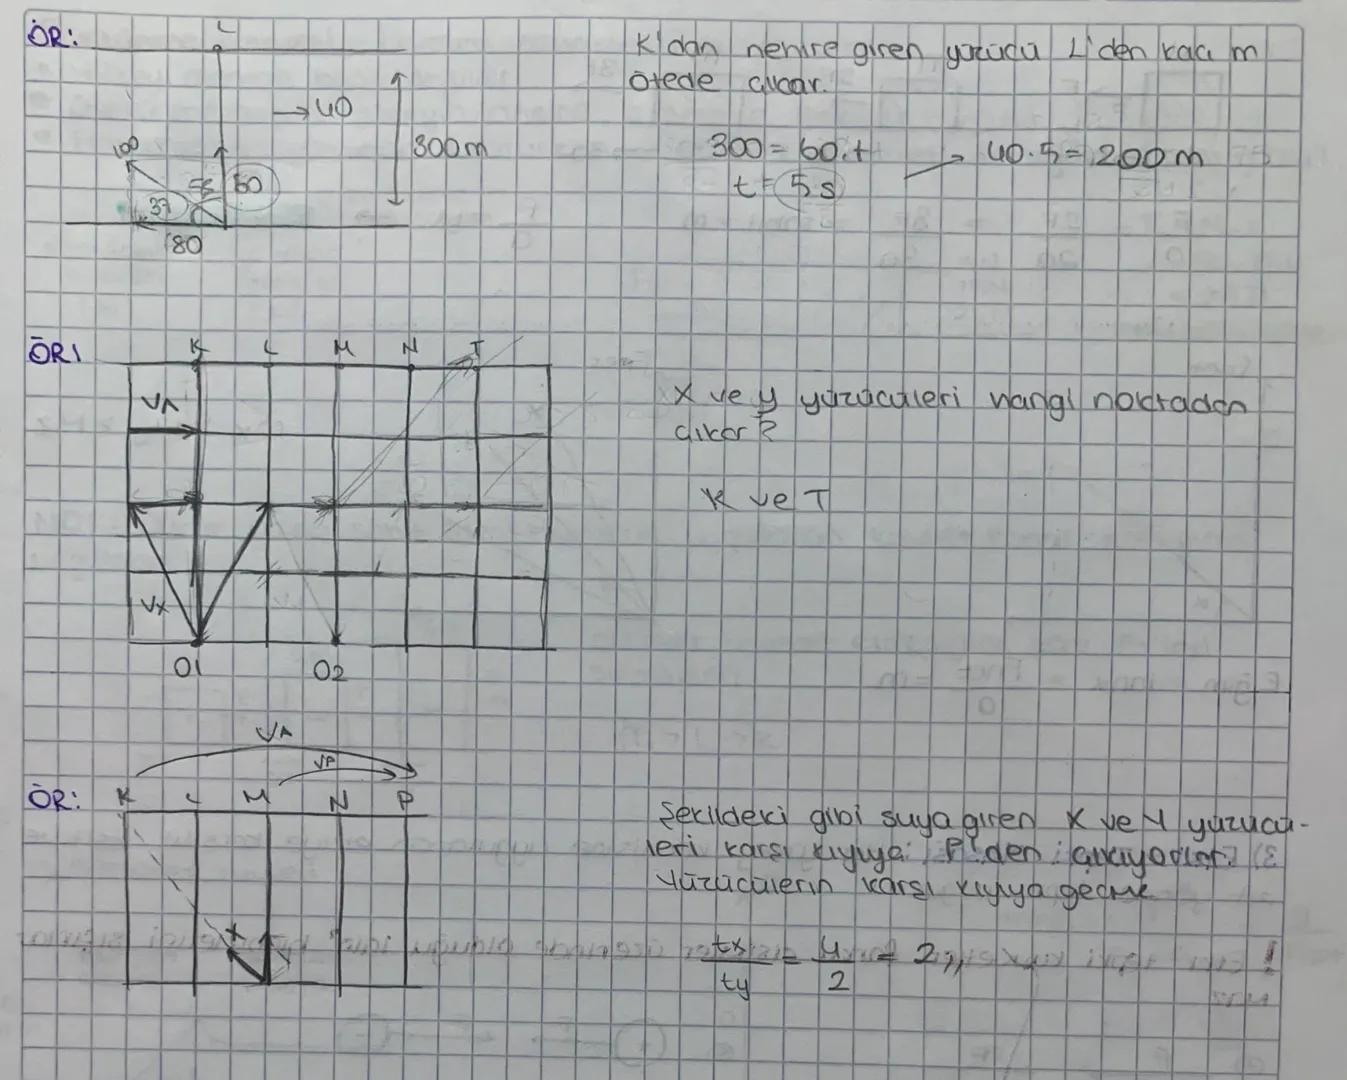 ÖR:
L
K'dan nehire giren yüzücü L'den kaç m
ötede çıkar.
→40
100
300m
300 = 60.t
40.5 = 200 m
t = 5 s
60
37
80
ÖR:
K L M N T
VA
X ve y yüzücüleri hangi noktadan
çıkar?
K ve T
VX
O1 O2
VA
VP
ÖR: K L M N P
Şekildeki gibi suya giren X ve Y yüzücü-
leri karşı kıyıya P'den çıkıyorlar.
Yüzücülerin karşı kıyıya geçme
X
tx/ty = 4/2 = 2//